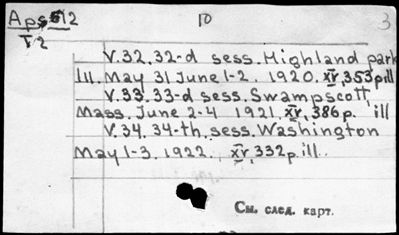 Арs 512 10 3
V/2
V.32. 32-d sess. Highland park
Ill. May 31 June 1-2. 1920. XV, 353p ill
V.33. 33-d sess. Swampscott
Mass. June 2-4 1921. XV, 386 p. ill
V.34. 34-th. sess. Washington
May 1-3. 1922. XV, 332 p. ill.
См. след. карт.